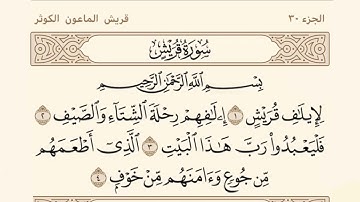 الجزء ٣٠
قريش الماعون الكوثر
سُورَةُ قُرَيْشٍ
بِسْمِ ٱللَّهِ ٱلرَّحْمَٰنِ ٱلرَّحِيمِ
لِإِيلَٰفِ قُرَيْشٍ ١ إِۦلَٰفِهِمْ رِحْلَةَ ٱلشِّتَآءِ وَٱلصَّيْفِ ٢
فَلْيَعْبُدُوا۟ رَبَّ هَٰذَا ٱلْبَيْتِ ٣ ٱلَّذِىٓ أَطْعَمَهُم
مِّن جُوعٍ وَءَامَنَهُم مِّنْ خَوْفٍۭ ٤